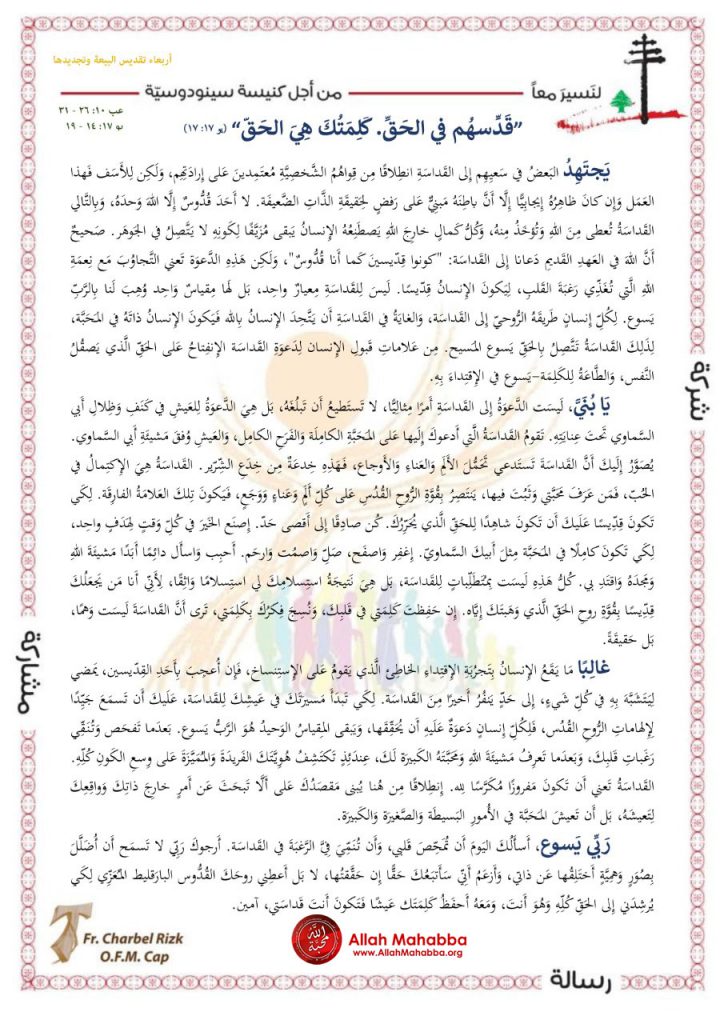 أربعاء تقديس البيعة وتجديدها
لنَسيرَ معاً
من أجل كنيسة سينودوسيّة
عب ١٠: ٢٦ - ٣١
يو ١٧: ١٤ - ١٩
”قَدِّسهُم في الحَقِّ. كَلِمَتُكَ هِيَ الحَقّ“ (يو ١٧: ١٧)
يَجتَهِدُ البَعضُ في سَعيِهِم إلى القَداسَةِ انطِلاقًا مِن قِواهُمُ الشَّخصِيَّةِ مُعتَمِدينَ عَلى إرادَتِهِم، وَلَكِن لِلأَسف فَهذا
العَمَل وَإن كانَ ظاهِرُهُ إيجابِيًّا إلَّا أنَّ باطِنَهُ مَبنِيٌّ عَلى رَفضٍ لِحَقيقَةِ الذَّاتِ الضَّعيفَة. لا أحَدَ قُدُّوسٌ إلَّا اللهَ وَحدَهُ، وَبِالتَّالي
القَداسَةُ تُعطى مِنَ اللهِ وَتُؤخَذُ مِنهُ، وَكُلُّ كَمالٍ خارِجَ اللهِ يَصطَنِعُهُ الإنسانُ يَبقى مُزَيَّفًا لِكَونِهِ لا يَتَّصِلُ في الجَوهَر. صَحيحٌ
أنَّ اللهَ في العَهدِ القَديمِ دَعانا إلى القَداسَة: "كونوا قِدّيسينَ كَما أنا قُدُّوسٌ"، وَلَكِن هَذِهِ الدَّعوَةَ تَعني التَّجاوُبَ مَع نِعمَةِ
اللهِ الَّتي تُغَذِّي رَغبَةَ القَلبِ، لِيَكونَ الإنسانُ قِدّيسًا. لَيسَ لِلقَداسَةِ مِعيارٌ واحِد، بَل لَها مِقياسٌ واحِد وُهِبَ لَنا بِالرَّبِّ
يَسوع. لِكُلِّ إنسانٍ طَريقَهُ الرُّوحيّ إلى القَداسَة، وَالغايَةُ في القَداسَةِ أن يَتَّحِدَ الإنسانُ بِالله فَيَكونَ الإنسانُ ذاتَهُ في المَحَبَّة،
لِذَلِكَ القَداسَةُ تَتَّصِلُ بِالحَقِّ يَسوعَ المَسيح. مِن عَلاماتِ قَبولِ الإنسان لِدَعوَةِ القَداسَة الإنفِتاحُ عَلى الحَقِّ الَّذي يَصقُلُ
النَّفس، وَالطَّاعَةُ لِلكَلِمَة-يَسوع في الإقتِداءِ بِهِ.
يَا بُنَيَّ، لَيسَت الدَّعوَةُ إلى القَداسَةِ أمرًا مِثالِيًّا، لا تَستَطيعُ أن تَبلُغَهُ، بَل هِيَ الدَّعوَةُ لِلعَيشِ في كَنَفِ وَظِلالِ أبي
السَّماوي تَحتَ عِنايَتِهِ. تَقومُ القَداسَةُ الَّتي أدعوكَ إلَيها عَلى المَحَبَّةِ الكامِلَةِ وَالفَرَحِ الكامِل، وَالعَيشِ وُفقَ مَشيئَةِ أبي السَّماوي.
يُصَوَّرُ إلَيكَ أنَّ القَداسَةَ تَستَدعي تَحَمُّلَ الألَمِ وَالعَناءِ وَالأوجاع، فَهَذِهِ خِدعَةٌ مِن خِدَعِ الشِّرّير. القَداسَةُ هِيَ الإكتِمالُ في
الحُبّ، فَمَن عَرَفَ مَحَبَّتي وَثَبُتَ فيها، يَنتَصِرُ بِقُوَّةِ الرُّوحِ القُدُسِ عَلى كُلِّ ألَمٍ وَعَناءٍ وَوَجَع، فَيَكونَ تِلكَ العَلامَةُ الفارِقَة. لِكَي
تَكونَ قِدّيسًا عَلَيكَ أن تَكونَ شاهِدًا لِلحَقِّ الَّذي يُحَرِّرُكَ. كُن صادِقًا إلى أقصى حَدّ. إصنَعِ الخَيرَ في كُلِّ وَقتٍ لِهَدَفٍ واحِد،
لِكَي تَكونَ كامِلًا في المَحَبَّة مِثلَ أبيكَ السَّماويّ. إغفِر وَاصفَح، صَلِّ وَاصمُت وَارحَم. أحبِب وَاسأل دائِمًا أبَدًا مَشيئَةَ اللهِ
وَمَجدَهُ وَاقتَدِ بي. كُلُّ هَذِهِ لَيسَت بِمُتَطَلِّباتٍ لِلقَداسَة، بَل هِيَ نَتيجَةُ استِسلامِكَ لي استِسلامًا واثِقًا، لِأنّي أنا مَن يَجعَلُكَ
قِدّيسًا بِقُوَّةِ روحِ الحَقِّ الَّذي وَهَبتَكَ إيَّاه. إن حَفِظتَ كَلِمَتي في قَلبِكَ، وَنُسِجَ فِكرُكَ بِكَلِمَتي، تَرى أنَّ القَداسَةَ لَيسَت وَهمًا،
بَل حَقيقَةً.
غالِبًا ما يَقَعُ الإنسانُ بِتَجرُبَةِ الإقتِداءِ الخاطِئِ الَّذي يَقومُ عَلى الإستِنساخ، فَإن أُعجِبَ بِأحَدِ القِدّيسين، يَمضي
لِيَتَشَبَّهَ بِهِ في كُلِّ شَيءٍ، إلى حَدٍّ يَنفُرُ أخيرًا مِنَ القَداسَة. لِكَي تَبدَأَ مَسيرَتَكَ في عَيشِكَ لِلقَداسَة، عَلَيكَ أن تَسمَعَ جَيّدًا
لِإلهاماتِ الرُّوحِ القُدُس، فَلِكُلِّ إنسانٍ دَعوَةٌ عَلَيهِ أن يُحَقِّقَها، وَيَبقى المِقياسُ الوَحيدُ هُوَ الرَّبُّ يَسوع. بَعدَما تَفحَص وَتُنَقّي
رَغَباتِ قَلبِكَ، وَبَعدَما تَعرِفُ مَشيئَةَ اللهِ وَمَحَبَّتَهُ الكَبيرَةَ لَكَ، عِندَئِذٍ تَكتَشِفُ هُوِيَّتَكَ الفَريدَةَ وَالمُمَيَّزَةَ عَلى وِسعِ الكَونِ كُلِّهِ.
القَداسَةُ تَعني أن تَكونَ مَفروزًا مُكَرَّسًا لِله. إنطِلاقًا مِن هُنا يُبنى مَقصَدُكَ عَلى ألَّا تَبحَثَ عَن أمرٍ خارِجَ ذاتِكَ وَوَاقِعِكَ
لِتَعيشَهُ، بَل أن تَعيشَ المَحَبَّةَ في الأُمورِ البَسيطَةِ وَالصَّغيرَة وَالكَبيرَة.
رَبِّي يَسوع، أسألُكَ اليَومَ أن تُمَحِّصَ قَلبي، وَأن تُنَمِّيَ فِيَّ الرَّغبَةَ في القَداسَة. أرجوكَ رَبّي لا تَسمَح أن أُضَلَّلَ
بِصُوَرٍ وَهمِيَّةٍ أختَلِقُها عَن ذاتي، وَأزعَمُ أنّي سَأتبَعُكَ حَقًّا إن حَقَّقتُها، لا بَل أعطِني روحَكَ القُدُّوس البارَقليط المُعَزّي لِكَي
يُرشِدَني إلى الحَقِّ كُلِّهِ وَهُوَ أنتَ، وَمَعَهُ أحفَظُ كَلِمَتَك عَيشًا فَتَكونُ أنتَ قَداسَتي، آمين.
شركة
مشاركة
رسالة
Fr. Charbel Rizk
O.F.M. Cap
الله محبّة
Allah Mahabba
www.AllahMahabba.org